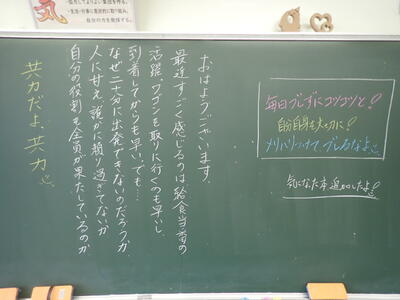 気
おはようございます。
最近すごく感じるのは給食当番の
活躍。ワゴンを取りに行くのも早いし、
到着してからも早い。でも…
なぜ二十分に出発できないのだろうか。
人に甘え、誰かに頼り過ぎてないか
自分の役割を全員が果たしているのか
共力だよ、共力
毎日ブレずにコツコツと!
自分自身を大切に!
メリハリつけて、ブレるなよ
気になった本追加したよ!